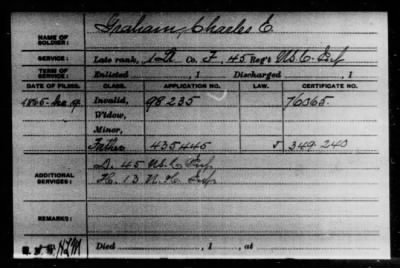 NAME OF SOLDIER: Graham, Charles E.
SERVICE: Late rank, 1-Lt Co. F, 45 Reg't U.S.C. Inf
TERM OF SERVICE: Enlisted , 1 Discharged , 1
DATE OF FILING. CLASS. APPLICATION NO. LAW. CERTIFICATE NO.
1865 Invalid, 98235 76065.
Widow,
Minor,
Father 435445 J 349 240
ADDITIONAL SERVICES: D. 45 U.S.C. Inf.
H. 13 N.H. Inf.
REMARKS:
Died , 1 , at